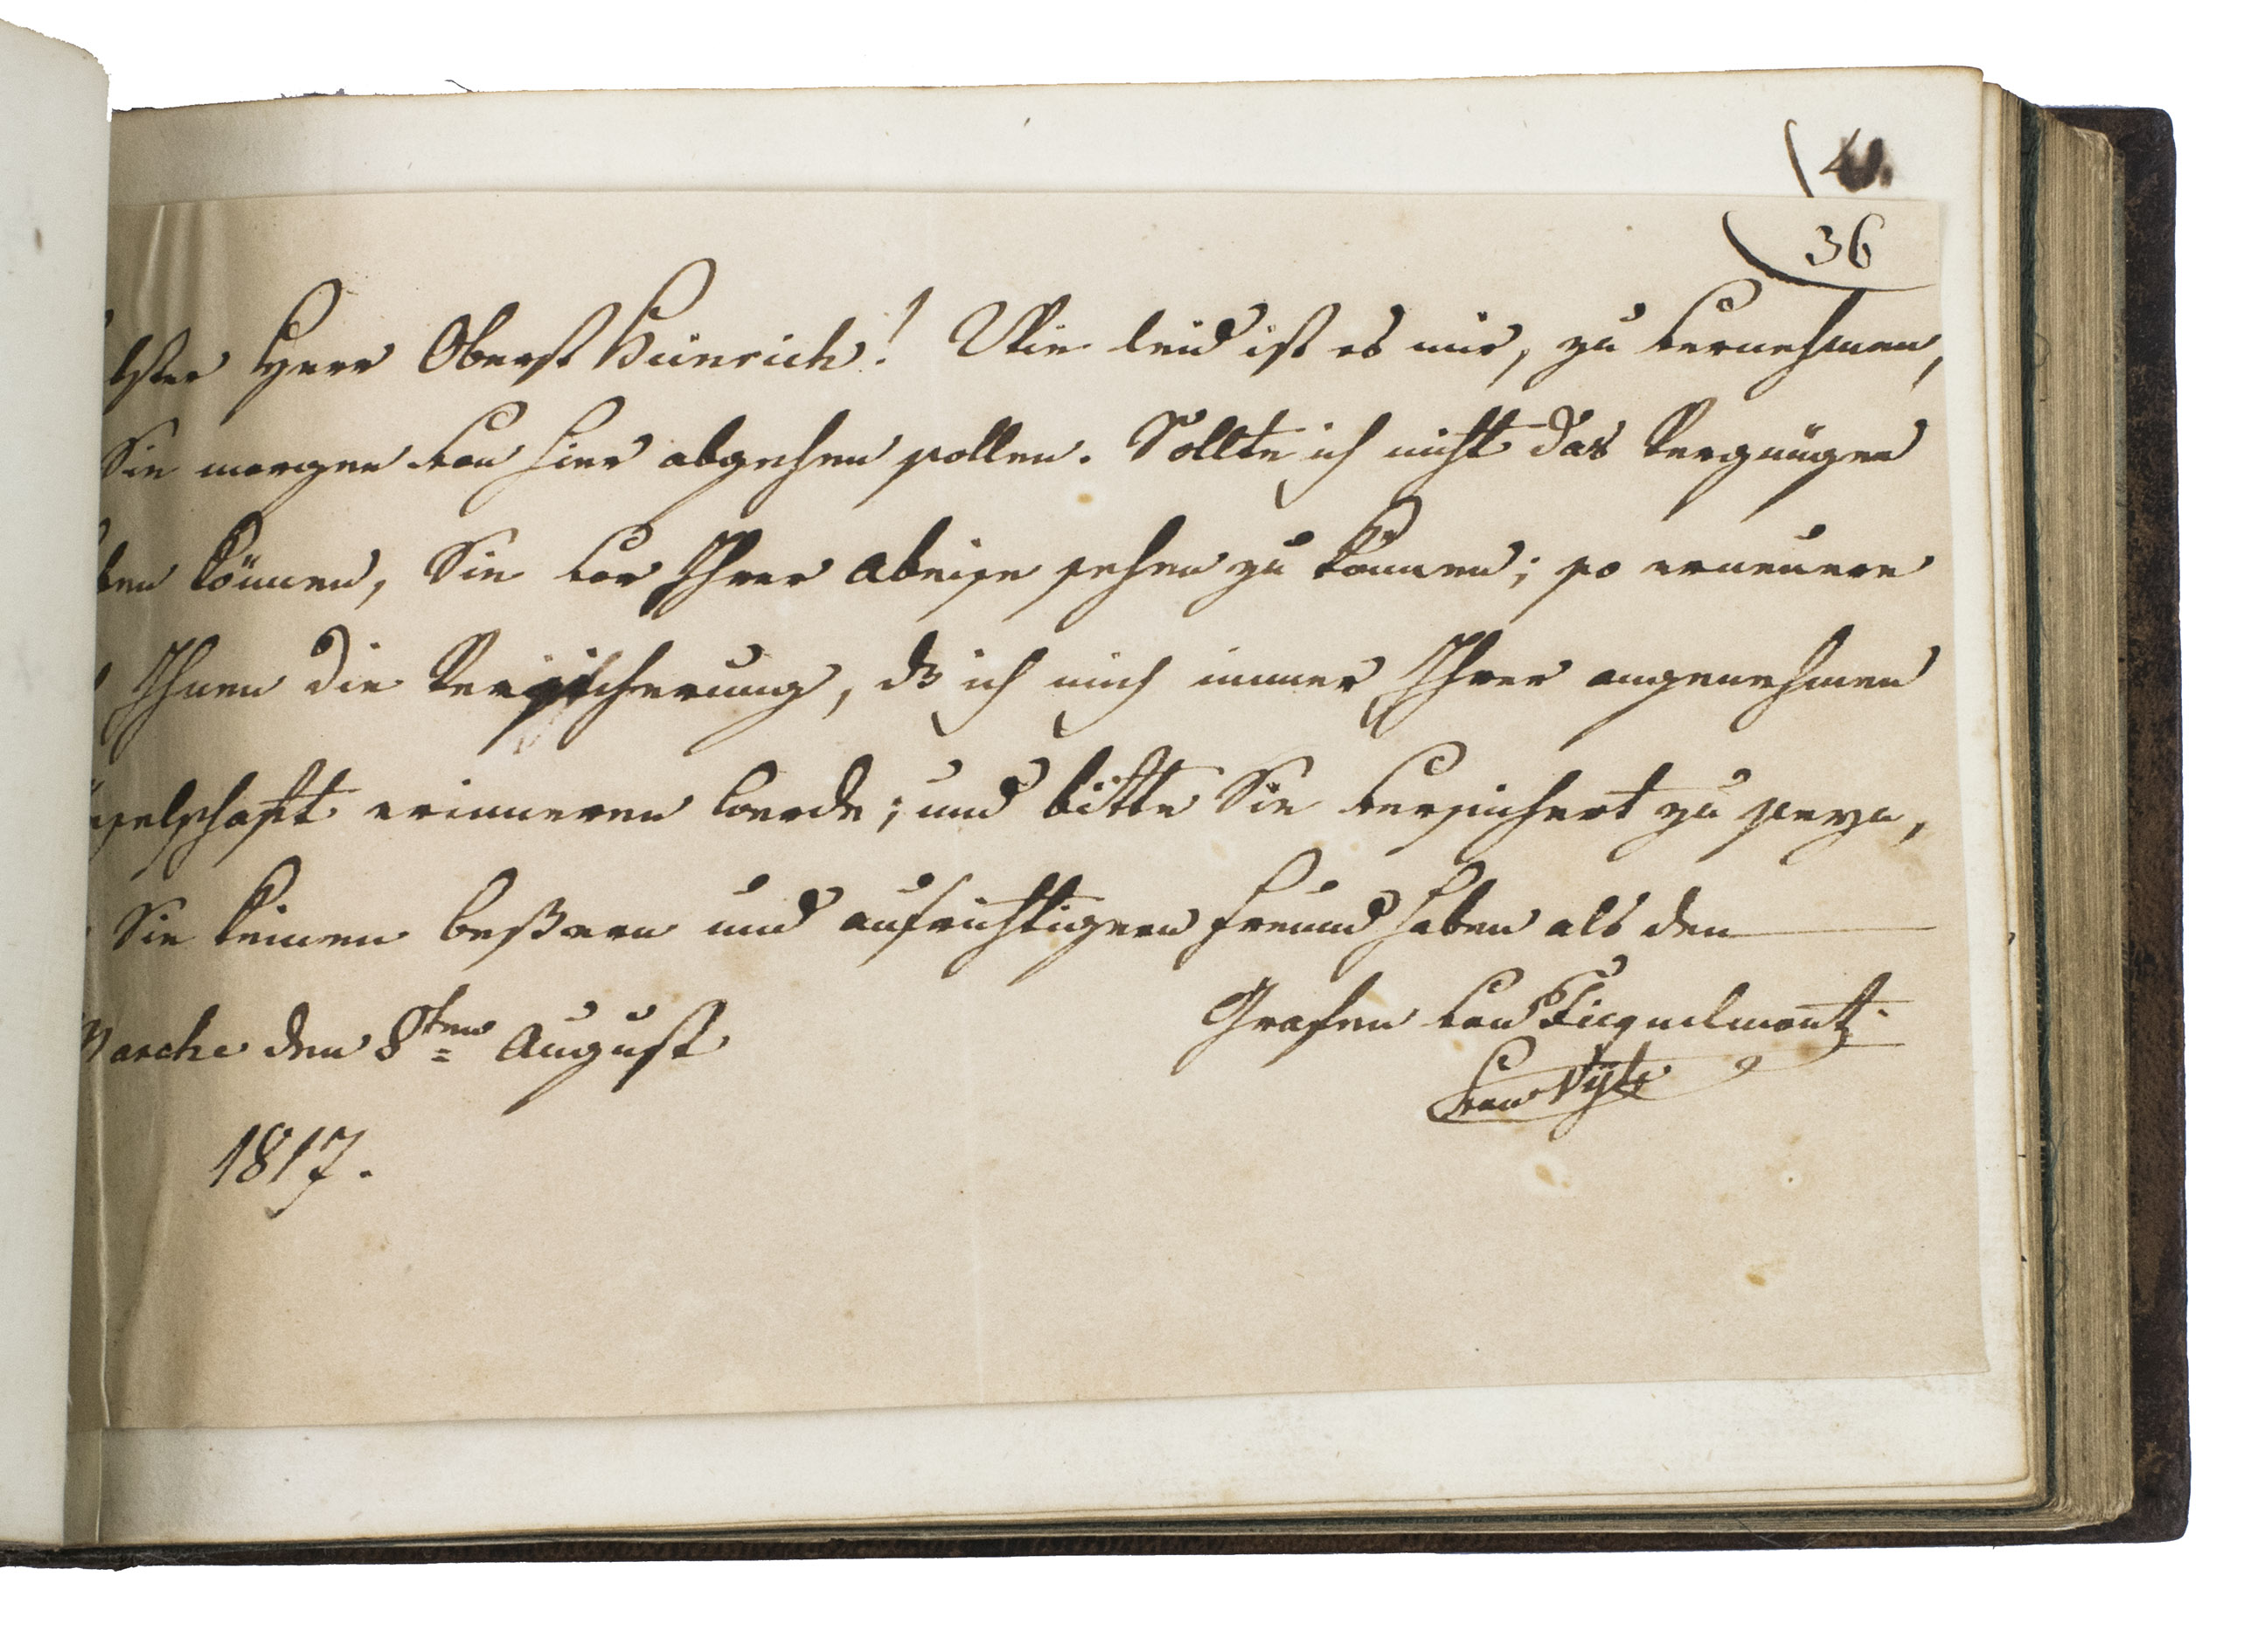 36
Herr Oberst Hünrich! Wie leid ist es mir, zu vernehmen,
Sie morgen von hier abgehen sollen. Sollte ich nicht das Vergnügen
können, Sie vor Ihrer Abreise sehen zu können; so erneuere
Ihnen die Versicherung, dß ich mich immer Ihrer angenehmen
erinneren werde; und bitte Sie versichert zu seyn,
Sie keinen beßeren und aufrichtigern Freund haben als den
Grafen von Ficquelmont
von Vijlè
Marche den 8ten August
1817.